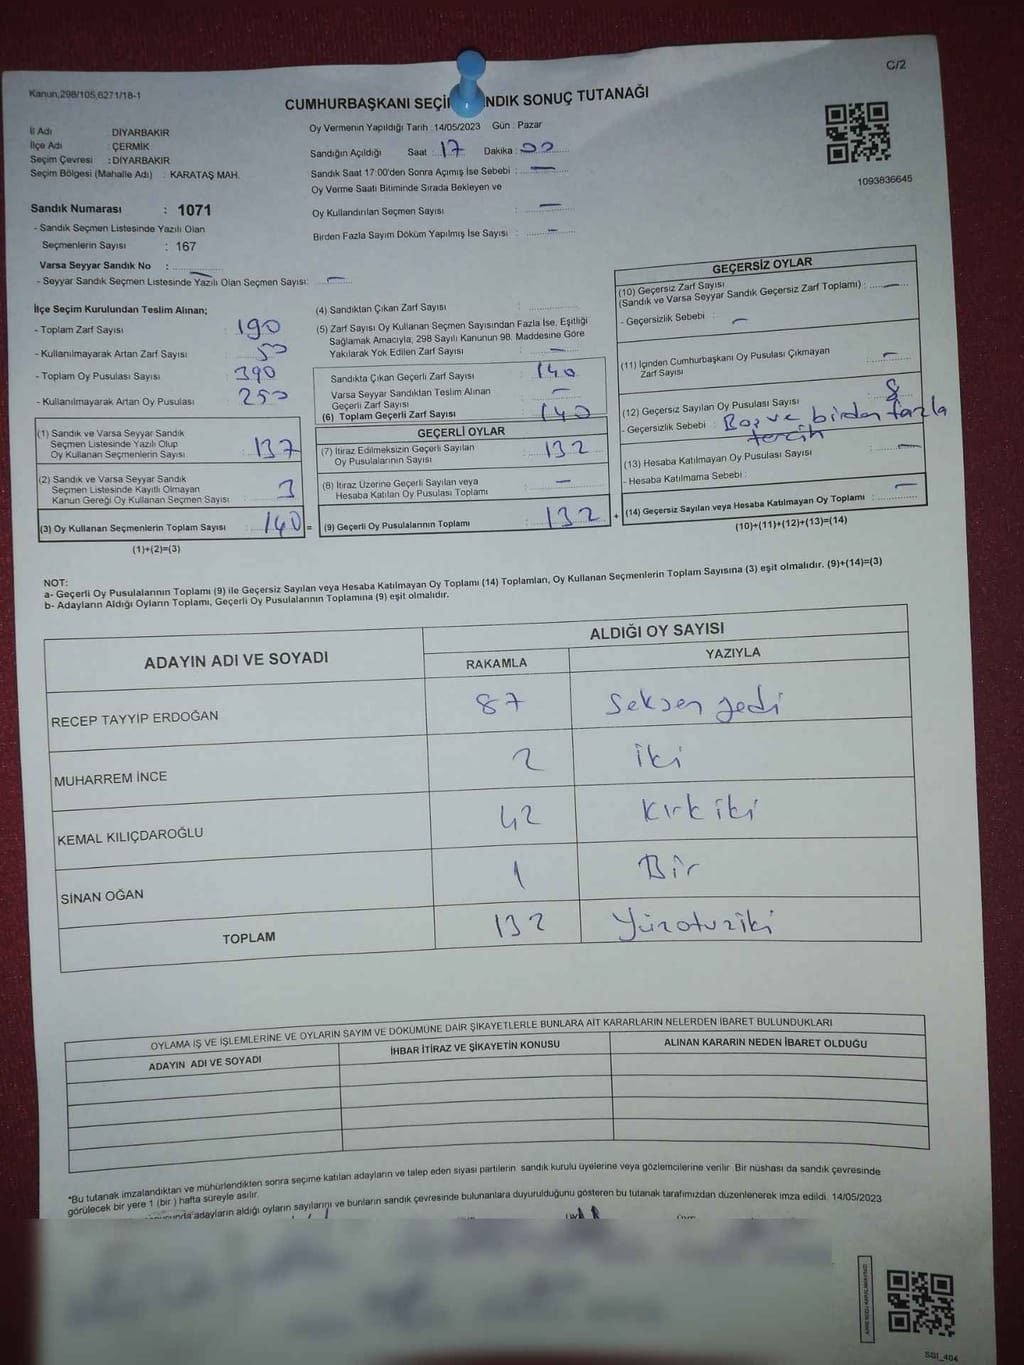 C/2
Kanun,298/105,6271/18-1
CUMHURBAŞKANI SEÇİ NDIK SONUÇ TUTANAĞI
İl Adı DİYARBAKIR
İlçe Adı : ÇERMİK
Seçim Çevresi : DİYARBAKIR
Seçim Bölgesi (Mahalle Adı) : KARATAŞ MAH.
Oy Vermenin Yapıldığı Tarih : 14/05/2023 Gün : Pazar
Sandığın Açıldığı Saat : 17 Dakika : 00
Sandık Saat 17:00'den Sonra Açımış İse Sebebi : —
Oy Verme Saati Bitiminde Sırada Bekleyen ve
Oy Kullandırılan Seçmen Sayısı : —
Birden Fazla Sayım Döküm Yapılmış İse Sayısı : —
1093836645
Sandık Numarası : 1071
- Sandık Seçmen Listesinde Yazılı Olan
Seçmenlerin Sayısı : 167
Varsa Seyyar Sandık No : —
- Seyyar Sandık Seçmen Listesinde Yazılı Olan Seçmen Sayısı: —
İlçe Seçim Kurulundan Teslim Alınan;
- Toplam Zarf Sayısı : 190
- Kullanılmayarak Artan Zarf Sayısı : 50
- Toplam Oy Pusulası Sayısı : 390
- Kullanılmayarak Artan Oy Pusulası : 250
(1) Sandık ve Varsa Seyyar Sandık
Seçmen Listesinde Yazılı Olup
Oy Kullanan Seçmenlerin Sayısı : 137
(2) Sandık ve Varsa Seyyar Sandık
Seçmen Listesinde Kayıtlı Olmayan
Kanun Gereği Oy Kullanan Seçmen Sayısı : 3
(3) Oy Kullanan Seçmenlerin Toplam Sayısı : 140 =
(1)+(2)=(3)
(4) Sandıktan Çıkan Zarf Sayısı :
(5) Zarf Sayısı Oy Kullanan Seçmen Sayısından Fazla İse, Eşitliği
Sağlamak Amacıyla, 298 Sayılı Kanunun 98. Maddesine Göre
Yakılarak Yok Edilen Zarf Sayısı : —
Sandıkta Çıkan Geçerli Zarf Sayısı : 140
Varsa Seyyar Sandıktan Teslim Alınan
Geçerli Zarf Sayısı : —
(6) Toplam Geçerli Zarf Sayısı : 140
GEÇERLİ OYLAR
(7) İtiraz Edilmeksizin Geçerli Sayılan
Oy Pusulalarının Sayısı : 132
(8) İtiraz Üzerine Geçerli Sayılan veya
Hesaba Katılan Oy Pusulası Toplamı : —
(9) Geçerli Oy Pusulalarının Toplamı : 132 +
GEÇERSİZ OYLAR
(10) Geçersiz Zarf Sayısı
(Sandık ve Varsa Seyyar Sandık Geçersiz Zarf Toplamı) : —
- Geçersizlik Sebebi : —
(11) İçinden Cumhurbaşkanı Oy Pusulası Çıkmayan
Zarf Sayısı : —
(12) Geçersiz Sayılan Oy Pusulası Sayısı : 8
- Geçersizlik Sebebi : Boş ve birden fazla
tercih
(13) Hesaba Katılmayan Oy Pusulası Sayısı : —
- Hesaba Katılmama Sebebi :
(14) Geçersiz Sayılan veya Hesaba Katılmayan Oy Toplamı : —
(10)+(11)+(12)+(13)=(14)
NOT:
a- Geçerli Oy Pusulalarının Toplamı (9) ile Geçersiz Sayılan veya Hesaba Katılmayan Oy Toplamı (14) Toplamları, Oy Kullanan Seçmenlerin Toplam Sayısına (3) eşit olmalıdır. (9)+(14)=(3)
b- Adayların Aldığı Oyların Toplamı, Geçerli Oy Pusulalarının Toplamına (9) eşit olmalıdır.
ADAYIN ADI VE SOYADI
ALDIĞI OY SAYISI
RAKAMLA YAZIYLA
RECEP TAYYİP ERDOĞAN 87 Seksen yedi
MUHARREM İNCE 2 iki
KEMAL KILIÇDAROĞLU 42 Kırk iki
SİNAN OĞAN 1 Bir
TOPLAM 132 Yüzotuziki
OYLAMA İŞ VE İŞLEMLERİNE VE OYLARIN SAYIM VE DÖKÜMÜNE DAİR ŞİKAYETLERLE BUNLARA AİT KARARLARIN NELERDEN İBARET BULUNDUKLARI
ADAYIN ADI VE SOYADI İHBAR İTİRAZ VE ŞİKAYETİN KONUSU ALINAN KARARIN NEDEN İBARET OLDUĞU
*Bu tutanak imzalandıktan ve mühürlendikten sonra seçime katılan adayların ve talep eden siyasi partilerin sandık kurulu üyelerine veya gözlemcilerine verilir. Bir nüshası da sandık çevresinde
görülecek bir yere 1 (bir ) hafta süreyle asılır.
adayların aldığı oyların sayılarını ve bunların sandık çevresinde bulunanlara duyurulduğunu gösteren bu tutanak tarafımızdan düzenlenerek imza edildi. 14/05/2023